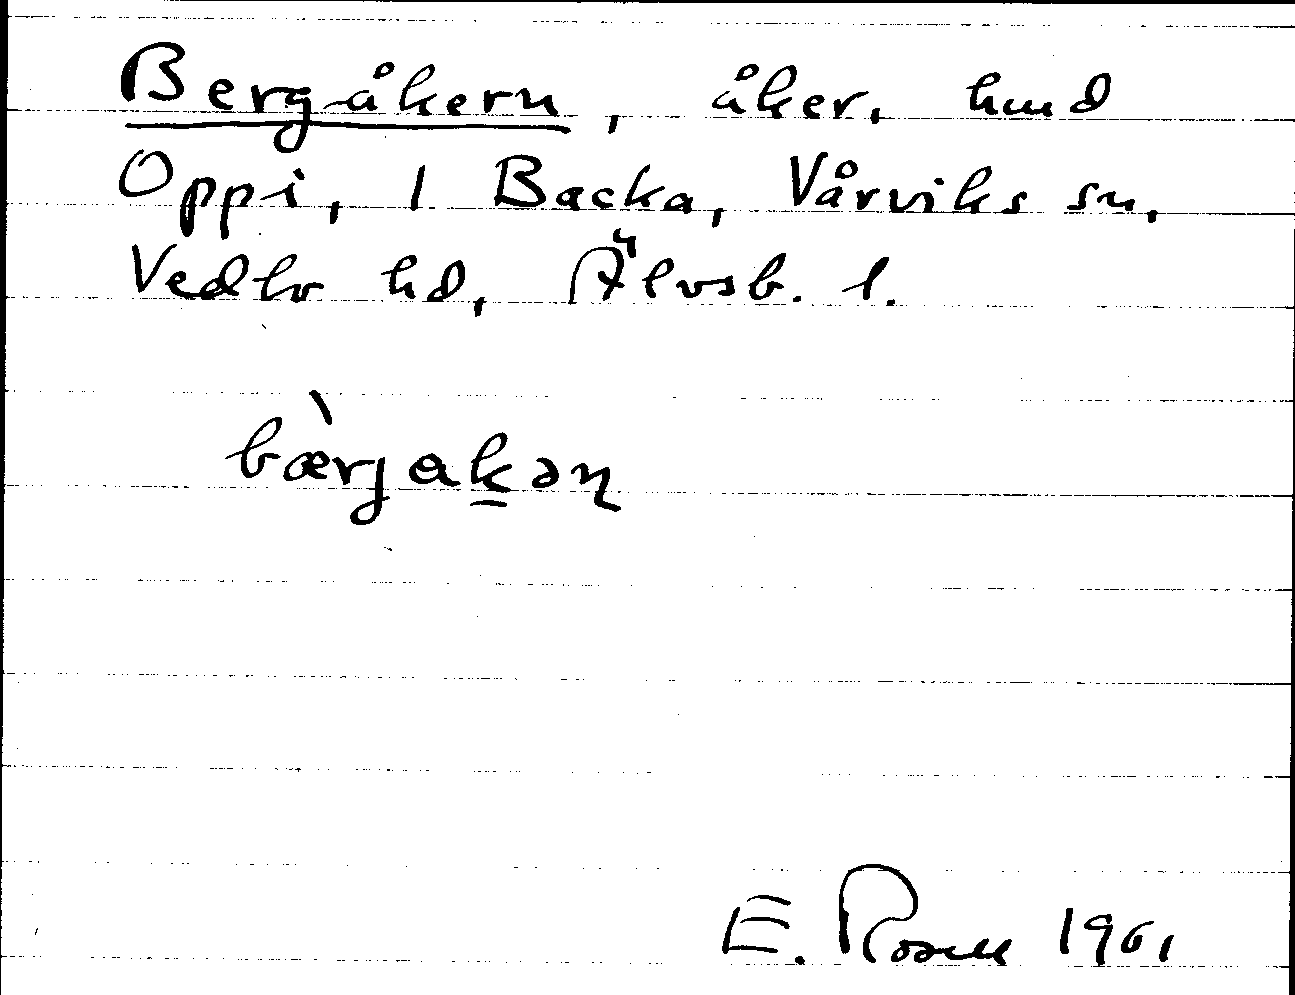 Bergåkern, åker, hmd
Oppi, 1 Backa, Vårviks sn,
Vedbo hd, Älvsb. l.
bæ̀rjak̲əɳ
E. Rosell 1961